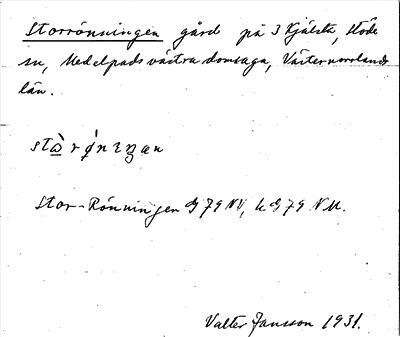 Storrönningen gård på 3 Kjälsta, Stöde
sn, Medelpads västra domsaga, Västernorrlands
län.
stɷ̀rǿnɪŋan
Stor-Rönningen G79 NV, k G79 NV.
Valter Jansson 1931.